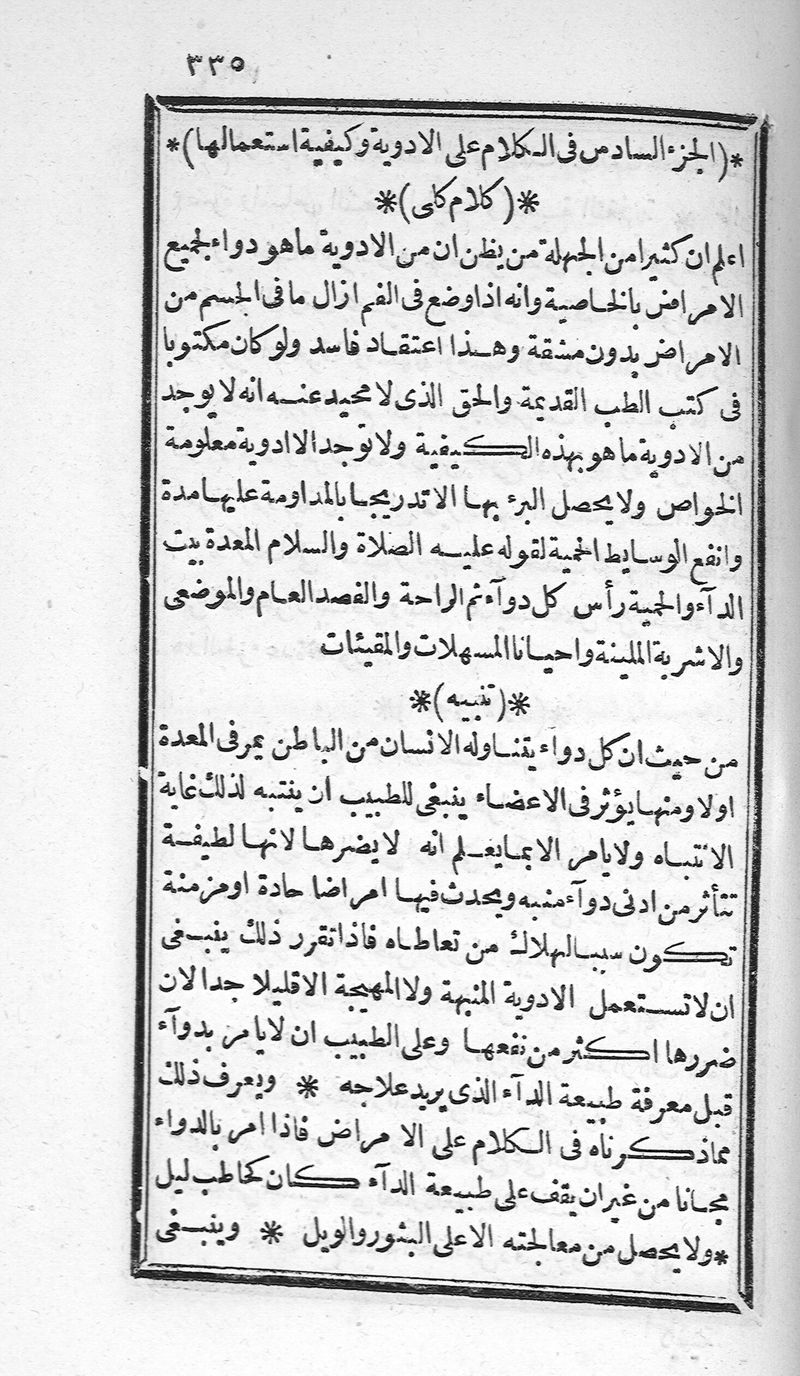 ٣٣٥
*(الجزء السادس فى الكلام على الادوية وكيفية استعمالها)*
*(كلام كلى)*
اعلم ان كثيرا من الجهلة من يظن ان من الادوية ماهو دواء لجميع
الامراض بالخاصية وانه اذا وضع فى الفم ازال ما فى الجسم من
الامراض بدون مشقة وهذا اعتقاد فاسد ولو كان مكتوبا
فى كتب الطب القديمة والحق الذى لا محيد عنه انه لا يوجد
من الادوية ما هو بهذه الكيفية ولا توجد الا ادوية معلومة
الخواص ولا يحصل البرء بها الا تدريجا بالمداومة عليها مدة
وانفع الوسايط الحمية لقوله عليه الصلاة والسلام المعدة بيت
الدآء والحمية رأس كل دوآء ثم الراحة والفصد العام والموضعى
والاشربة الملينة واحيانا المسهلات والمقيئات
*(تنبيه)*
من حيث ان كل دوآء يتناوله الانسان من الباطن يمر فى المعدة
اولا ومنها يؤثر فى الاعضاء ينبغى للطبيب ان ينتبه لذلك غاية
الانتباه ولا يامر الا بما يعلم انه لا يضرها لانها لطيفة
تتأثر من ادنى دوآء منبه ويحدث فيها امراضا حادة او مزمنة
تكون سببا لهلاك من تعاطاه فاذا تقرر ذلك ينبغى
ان لا تستعمل الادوية المنبهة ولا المهيجة الا قليلا جدا لان
ضررها اكثر من نفعها وعلى الطبيب ان لا يامر بدوآء
قبل معرفة طبيعة الدآء الذى يريد علاجه * ويعرف ذلك
مما ذكرناه فى الكلام على الامراض فاذا امر بالدواء
مجانا من غير ان يقف على طبيعة الدآء كان كحاطب ليل
* ولا يحصل من معالجته الا على الثبور والويل * وينبغى